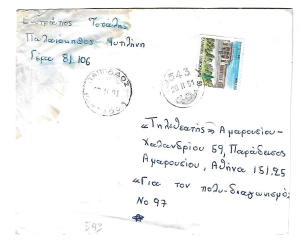 Ευστράτιος Τσαλής
Παλαιόκηπος Μυτιλήνη
Γέρα 81.106
543
20 II 91
«Τηλεθεατής» Αμαρουσίου-
Χαλανδρίου 59, Παράδεισος
Αμαρουσίου, Αθήνα 151.25
«Για τον πολυ-διαγωνισμό;
Νο 97
543